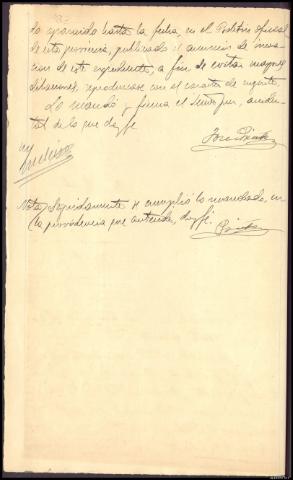 hasta la fecha, en el Boletín Oficial
de esta provincia, publicado el anuncio de incoa-
ción de este expediente, a fin de evitar mayores
dilaciones, reprodúzcase con el caracter de urgente
Lo mandó y firma el Señor Juez, acciden-
tal de lo que doy fe
Nota: Seguidamente se cumplió lo mandado, en
la providencia que antecede, doy fé.